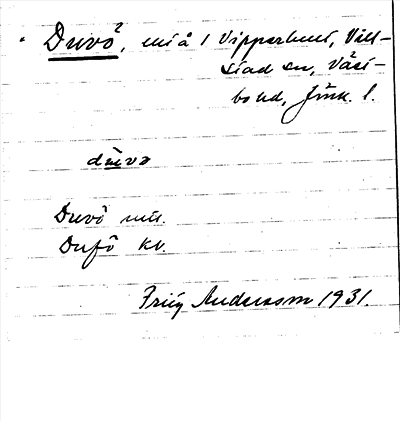 Duvö, miå i Vipperhult, Vill-
stad sn, Väst-
bo hd, Jönk. l.
duvə
Duvö mtl.
Dufö kv.
Frity Andersson 1931.